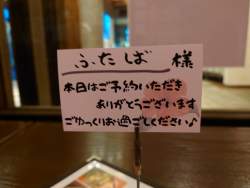 ふたば 様
本日はご予約いただき
ありがとうございます
ごゆっくりお過ごしください♪